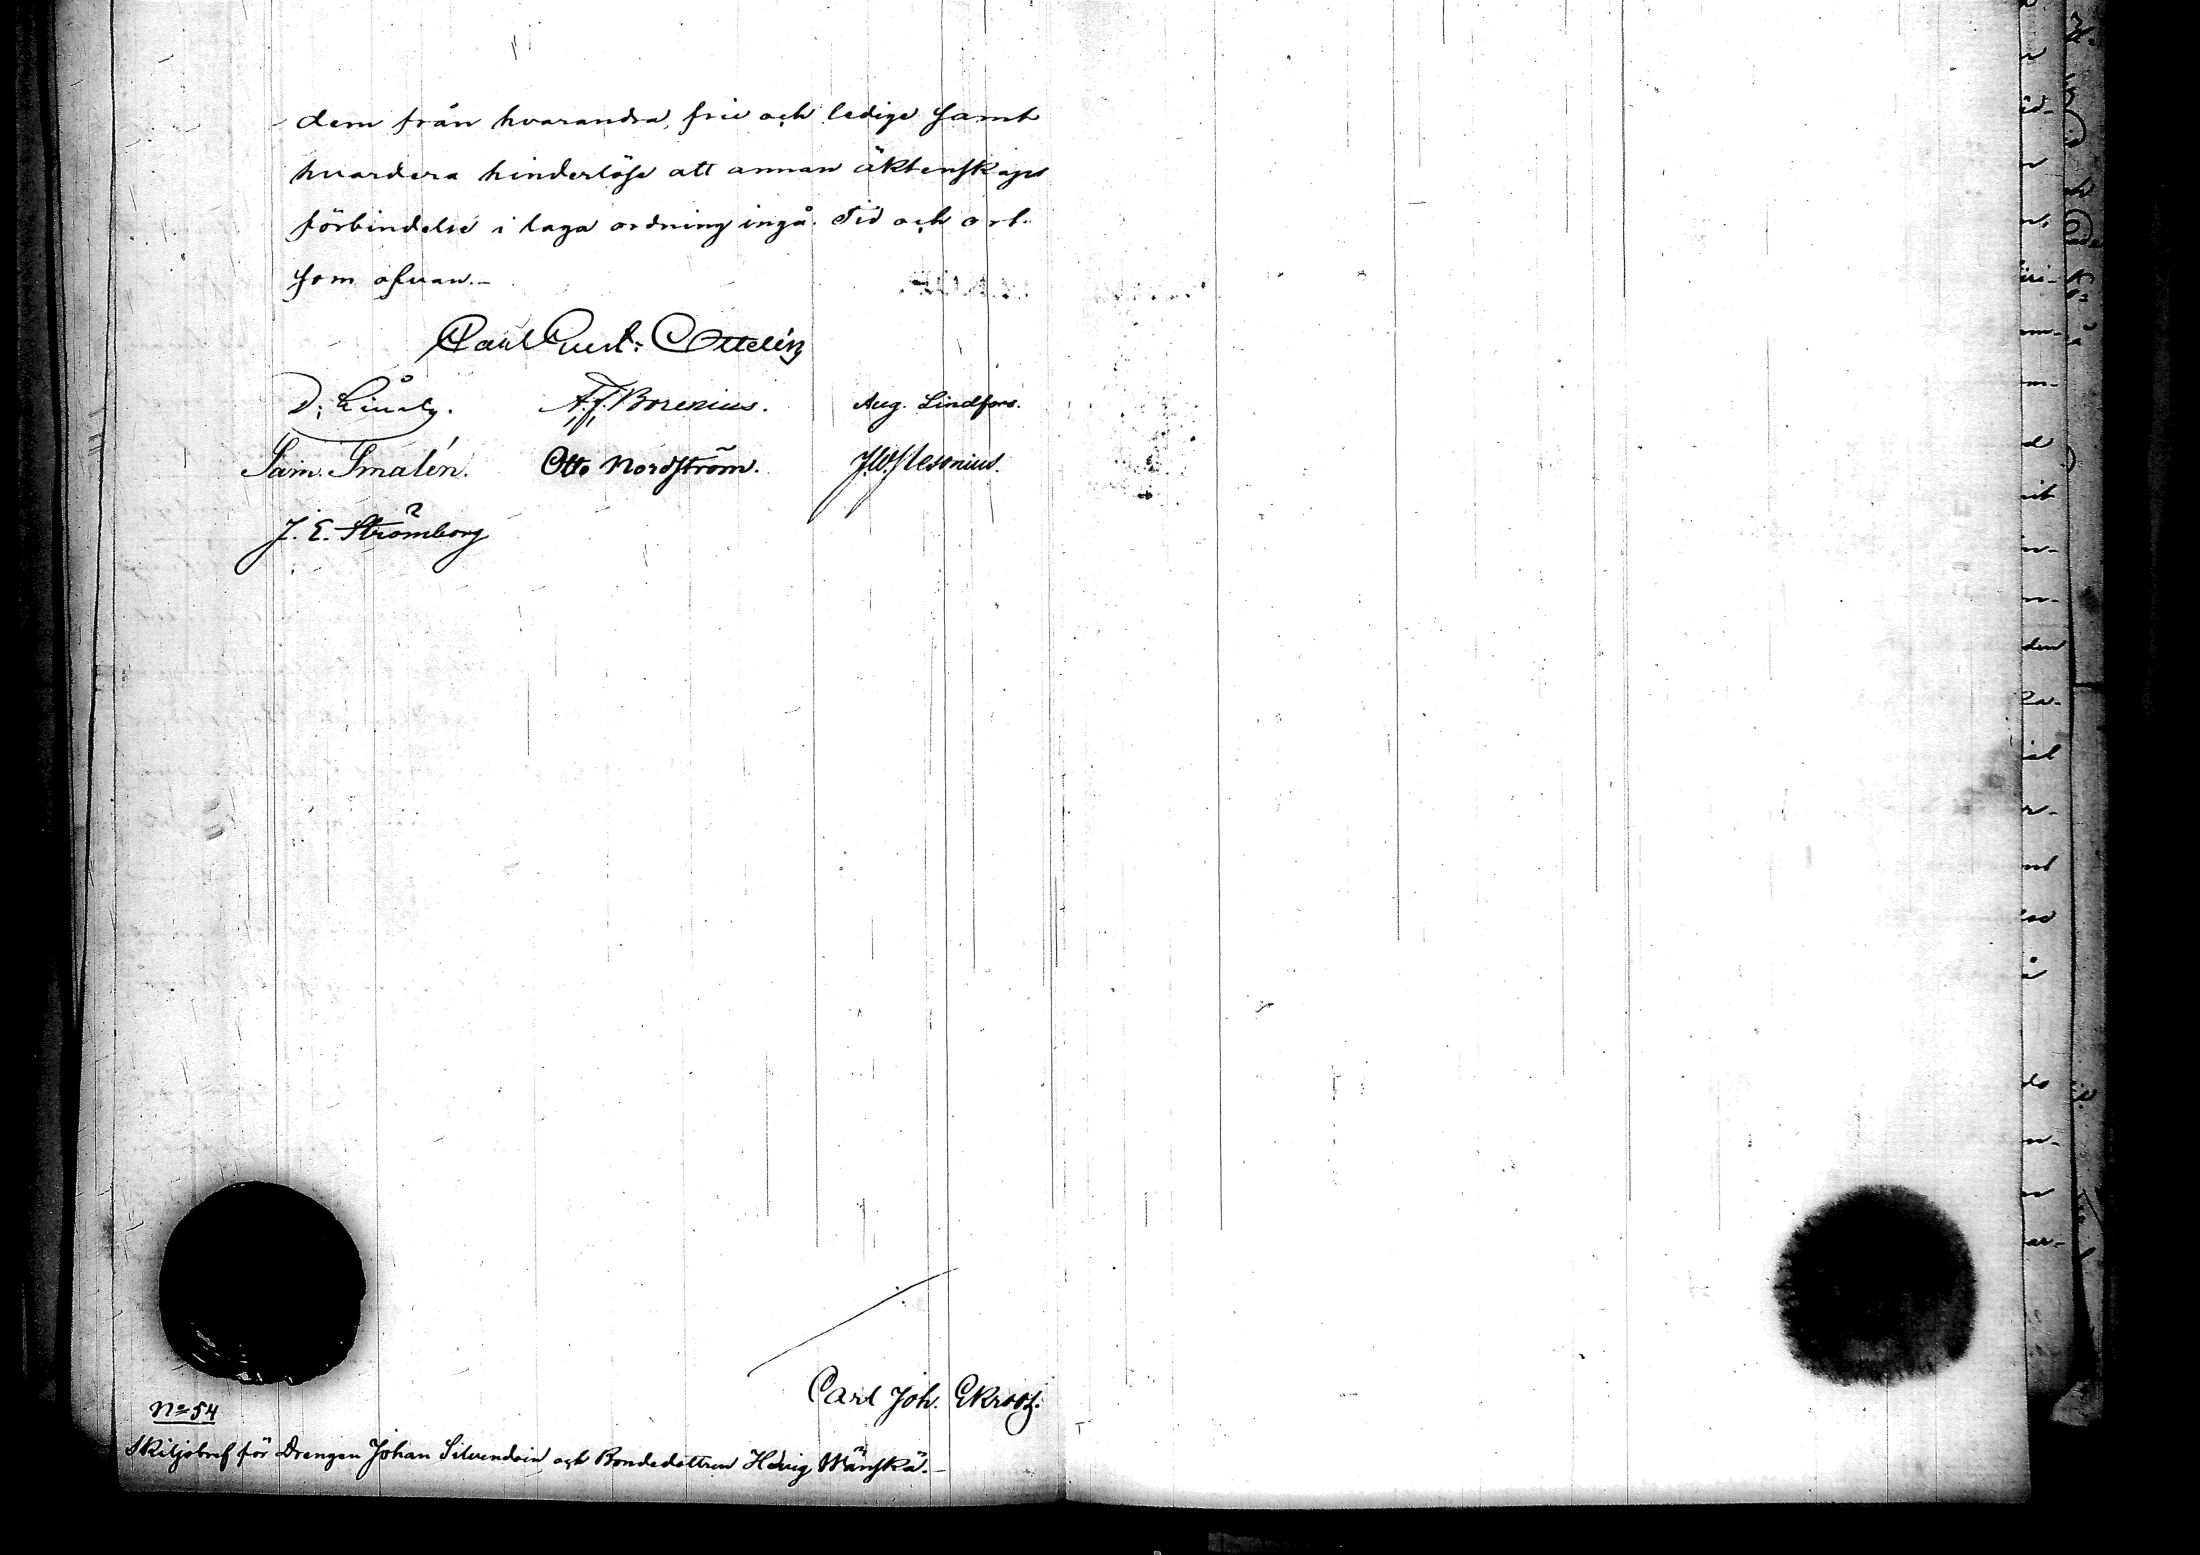 dem från hvarandra, frie och ledige samt
hvardera hinderlöse att annan äktenskaps
förbindelse i laga ordning ingå. Tid och ort
som ofvan.-
Carl Gust: Ottelin
A. F. Borenius. Aug. Lindfors.
Sam. Smalén. Otto Nordström. J. W. Alesonius.
J. E. Strömborg
Carl Joh. Ekroos.
No 54
Skiljobref för Drengen Johan Silvendoin och Bondedottren Hevig Wänskä.-